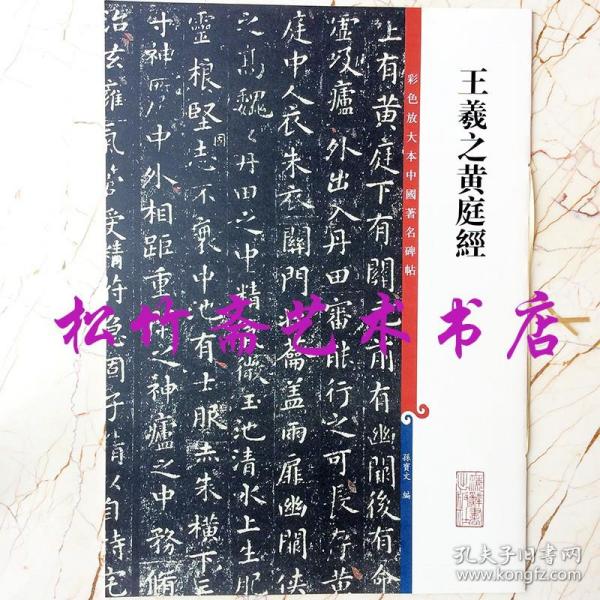 王羲之黄庭經
彩色放大本中國著名碑帖
孫寶文 編
上有黄庭下有關前有幽闕後有命
嘘吸廬外出入丹田審能行之可長存黄
庭中人衣朱衣關門籥蓋兩扉幽闕俠
之高魏丹田之中精微玉池清水上生肥
靈根堅志不衰中池有士服赤朱横下三
固
寸神所中外相距重之神廬之中務脩
治玄癰氣管受精符急固子精以自持宅
松竹斋艺术书店
孔夫子旧书网
www.kongfz.com